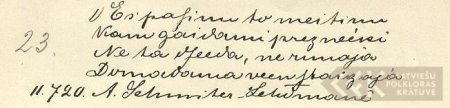 1) Es pasinu to meitinu
23. Kam gaidami prezneeki
Ne ta dzeeda, ne runaja
Domadama veen staigaja
11.720. A. Schmiter-Letumane
LATVIEŠU
FOLKLORAS
KRĀTUVE